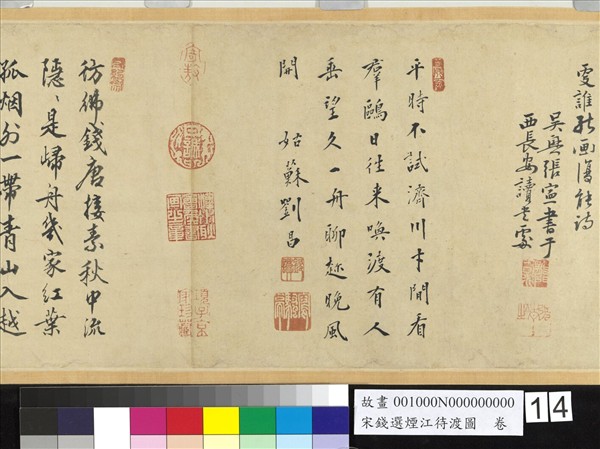 誰能画復能詩
吴興張書于
西長安讀書處
平時不試濟川才閒看
羣鷗日往来喚渡有人
垂望久一舟聊趂晚風
開 姑蘇劉昌
彷彿錢唐接素秋中流
隱〻是歸舟幾家紅葉
孤烟外一帶青山入越
故畫 001000N000000000
宋錢選煙江待渡圖 卷
14